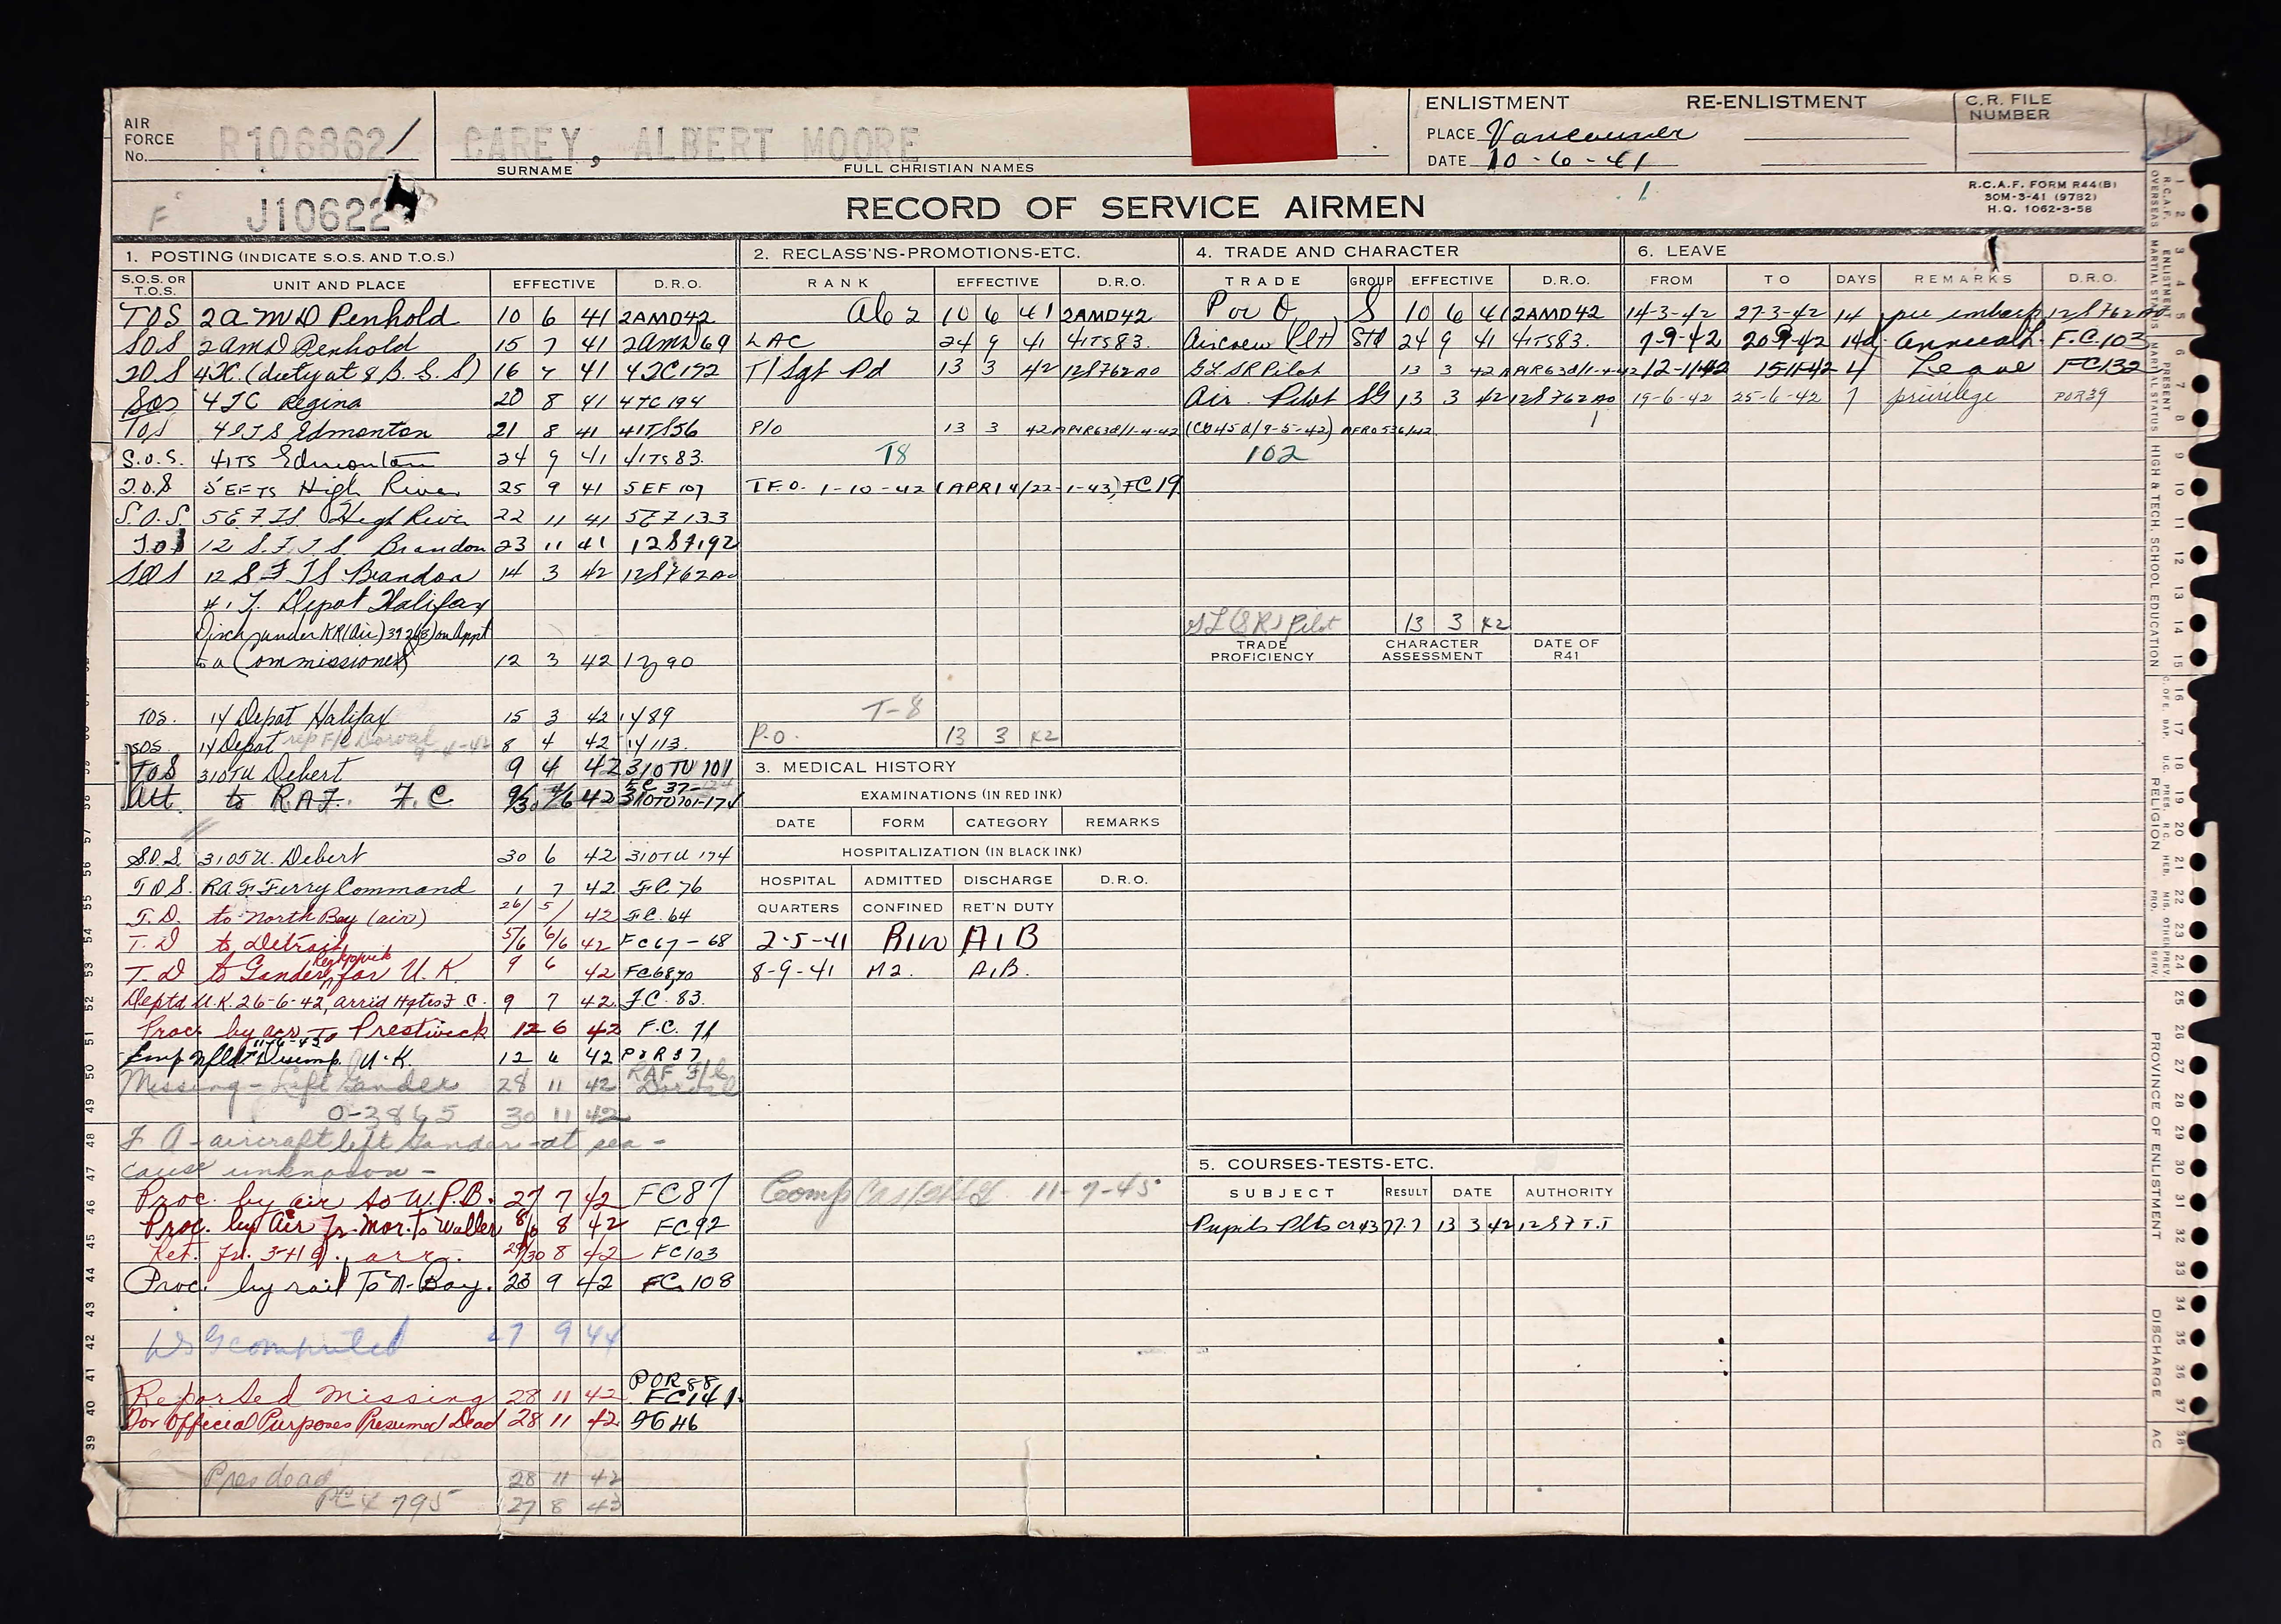 AIR FORCE No. R106862/
CAREY, ALBERT MOORE
SURNAME FULL CHRISTIAN NAMES
ENLISTMENT RE-ENLISTMENT
PLACE Vancouver
DATE 10-6-41
C.R. FILE NUMBER
F J10622
RECORD OF SERVICE AIRMEN
R.C.A.F. FORM R44(B)
50M-3-41 (9782)
H.Q. 1062-3-58
1. POSTING (INDICATE S.O.S. AND T.O.S.)
S.O.S. OR T.O.S. UNIT AND PLACE EFFECTIVE D.R.O.
TOS 2 A M D Penhold 10 6 41 2AMD42
SOS 2 A M D Penhold 15 7 41 2AMD69
TOS 4TC (duty at 8 B. & G. S) 16 7 41 4TC172
SOS 4 TC Regina 20 8 41 4TC194
TOS 4 ITS Edmonton 21 8 41 4ITS56
S.O.S. 4ITS Edmonton 24 9 41 4ITS83.
T.O.S 5 EFTS High River 25 9 41 5EF107
S.O.S. 5EFTS High River 22 11 41 5EF133
TOS 12 S.F.T.S. Brandon 23 11 41 12SF192
SOS 12 S F T S Brandon 14 3 42 12SF62AO
Depot Halifax
Disch under KR(Air) on Appt
to a Commission 12 3 42 1Y90
TOS. 1Y Depot Halifax 15 3 42 1Y89
SOS. 1Y Depot rep F/C Dorval 9-4-42 8 4 42 1Y113.
TOS 31OTU Debert 9 4 42 31OTU 101
Att to R.A.F. F.C 9/4 30/6 42 31OTU101-174
S.O.S. 31OTU. Debert 30 6 42 31OTU 174
T.O.S. RAF Ferry Command 1 7 42 FC76
T.D. to North Bay (air) 26/5/42 F.C. 64
T.D to Detroit 5/6 6/6 42 FC67-68
T.D to Gander, Reykjavik for U.K. 9 6 42 FC68,70
Deptd U.K. 26-6-42, arrid Hqtrs F.C. 9 7 42 F.C. 83.
Proc. by air to Prestwick 12 6 42 F.C. 71
Emp Nfld Disemp. U.K 12 6 42 POR 37
Missing - Left Gander 28 11 42 RAF F/C Dorval
0-3865 30 11 42
F A - aircraft left Gander - at sea -
cause unknown -
Proc. by air to W.P.B. 27 7 42 FC87
Proc. by Air fr. Mor. to Waller 8 42 FC92
Ret. fr. arr. 29/30 8 42 FC103
Proc. by rail To N. Bay. 28 9 42 FC.108
WSG computed 27 9 44
Reported Missing 28 11 42 POR88 FC141
For Official Purposes Presumed Dead 28 11 42
Pres dead 28 11 42
PC4 795 27 8 43
2. RECLASS'NS-PROMOTIONS-ETC.
RANK EFFECTIVE D.R.O.
AC 2 10 6 41 2AMD42
LAC 24 9 41 4ITS83.
T/Sgt Pd 13 3 42 12SF62AO
P/O 13 3 42 APIR63d/1-4-42
T8
T.F.O. 1-10-42 (APRI 4/22-1-43) FC19
T-8
P.O. 13 3 42
3. MEDICAL HISTORY
EXAMINATIONS (IN RED INK)
DATE FORM CATEGORY REMARKS
HOSPITALIZATION (IN BLACK INK)
HOSPITAL ADMITTED DISCHARGE D.R.O.
QUARTERS CONFINED RET'N DUTY
2-5-41 A1B
8-9-41 M2. A1B.
Comp 11-7-45
4. TRADE AND CHARACTER
TRADE GROUP EFFECTIVE D.R.O.
P or O S 10 6 41 2AMD42
Aircrew (Plt) STD 24 9 41 4ITS83.
GL SR Pilot 13 3 42 APIR63d/1-4-42
Air Pilot SG 13 3 42 12SF62AO
(CO45d/9-5-42) AFRO536/42
102
GL (SR) Pilot 13 3 42
TRADE PROFICIENCY CHARACTER ASSESSMENT DATE OF R41
5. COURSES-TESTS-ETC.
SUBJECT RESULT DATE AUTHORITY
Pupils Plts 43 77.7 13 3 42 12SFTS
6. LEAVE
FROM TO DAYS REMARKS D.R.O.
14-3-42 27-3-42 14 pre embark 12SF62AO
7-9-42 20-9-42 14d. annual. F.C.103
12-11-42 15-11-42 4 Leave FC132
19-6-42 25-6-42 7 privilege POR39
R.C.A.F. OVERSEAS
ENLISTMENT MARITAL STATUS
PRESENT MARITAL STATUS
HIGH & TECH. SCHOOL EDUCATION
C. OF E. BAP. U.C. PRES. R.C. HEB. MIS. OTHER PRO.
RELIGION
PREV. SERV.
PROVINCE OF ENLISTMENT
DISCHARGE
AC
1 2 3 4 5 6 7 8 9 10 11 12 13 14 15 16 17 18 19 20 21 22 23 24 25 26 27 28 29 30 31 32 33 34 35 36 37 38
39 40 41 42 43 44 45 46 47 48 49 50 51 52 53 54 55 56 57 58